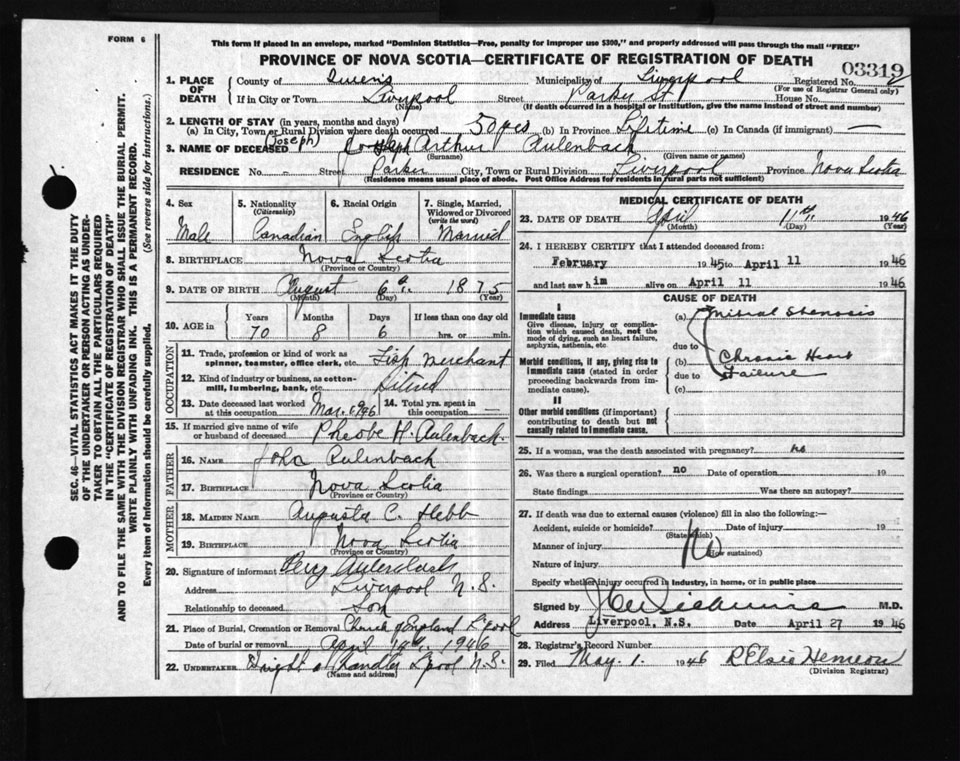 FORM 6
This form if placed in an envelope, marked "Dominion Statistics—Free, penalty for improper use $300," and properly addressed will pass through the mail "FREE"
PROVINCE OF NOVA SCOTIA—CERTIFICATE OF REGISTRATION OF DEATH
03319
1. PLACE OF DEATH County of Queens Municipality of Liverpool Registered No.
(For use of Registrar General only)
If in City or Town Liverpool Street Parker St House No.
(Name) (If death occurred in a hospital or institution, give the name instead of street and number)
2. LENGTH OF STAY (in years, months and days)
(a) In City, Town or Rural Division where death occurred 50 yrs (b) In Province Lifetime (c) In Canada (if immigrant) —
3. NAME OF DECEASED (Joseph) Joseph Arthur Aulenback
(Surname) (Given name or names)
RESIDENCE No. - Street Parker City, Town or Rural Division Liverpool Province Nova Scotia
(Residence means usual place of abode. Post Office Address for residents in rural parts not sufficient)
4. Sex 5. Nationality (Citizenship) 6. Racial Origin 7. Single, Married, Widowed or Divorced (write the word)
Male Canadian English Married
8. BIRTHPLACE Nova Scotia
(Province or Country)
9. DATE OF BIRTH August 6th 1875
(Month) (Day) (Year)
10. AGE in Years Months Days If less than one day old
70 8 6 hrs. or min.
OCCUPATION
11. Trade, profession or kind of work as spinner, teamster, office clerk, etc. Fish Merchant
12. Kind of industry or business, as cotton-mill, lumbering, bank, etc. Retired
13. Date deceased last worked at this occupation Mar. 1946 14. Total yrs. spent in this occupation —
15. If married give name of wife or husband of deceased Pheobe H. Aulenback.
FATHER
16. NAME John Aulenback
17. BIRTHPLACE Nova Scotia
(Province or Country)
MOTHER
18. MAIDEN NAME Augusta C. Hebb
19. BIRTHPLACE Nova Scotia
(Province or Country)
20. Signature of informant Percy Aulenback
Address Liverpool N.S.
Relationship to deceased son
21. Place of Burial, Cremation or Removal Church of England L'pool
Date of burial or removal April 1946
22. UNDERTAKER Chandler L'pool N.S.
(Name and address)
MEDICAL CERTIFICATE OF DEATH
23. DATE OF DEATH April 11th 1946
(Month) (Day) (Year)
24. I HEREBY CERTIFY that I attended deceased from:
February 1945 to April 11 1946
and last saw him alive on April 11 1946
CAUSE OF DEATH
I
Immediate cause
Give disease, injury or complication which caused death, not the mode of dying, such as heart failure, asphyxia, asthenia, etc.
(a) Mitral Stenosis
due to
Morbid conditions, if any, giving rise to immediate cause (stated in order proceeding backwards from immediate cause).
(b) Chronic Heart
due to Failure
(c)
II
Other morbid conditions (if important) contributing to death but not causally related to immediate cause.
25. If a woman, was the death associated with pregnancy? no
26. Was there a surgical operation? no Date of operation 19
State findings Was there an autopsy?
27. If death was due to external causes (violence) fill in also the following:—
Accident, suicide or homicide? Date of injury 19
(State which)
Manner of injury No
(How sustained)
Nature of injury
Specify whether injury occurred in industry, in home, or in public place
Signed by M.D.
Address Liverpool, N.S. Date April 27 1946
28. Registrar's Record Number
29. Filed May. 1. 1946 R Elsie Hemeon
(Division Registrar)
SEC. 46—VITAL STATISTICS ACT MAKES IT THE DUTY
OF THE UNDERTAKER OR PERSON ACTING AS UNDER-
TAKER TO OBTAIN ALL THE PARTICULARS REQUIRED
IN THE "CERTIFICATE OF REGISTRATION OF DEATH"
AND TO FILE THE SAME WITH THE DIVISION REGISTRAR WHO SHALL ISSUE THE BURIAL PERMIT.
WRITE PLAINLY WITH UNFADING INK. THIS IS A PERMANENT RECORD.
Every item of Information should be carefully supplied. (See reverse side for instructions.)